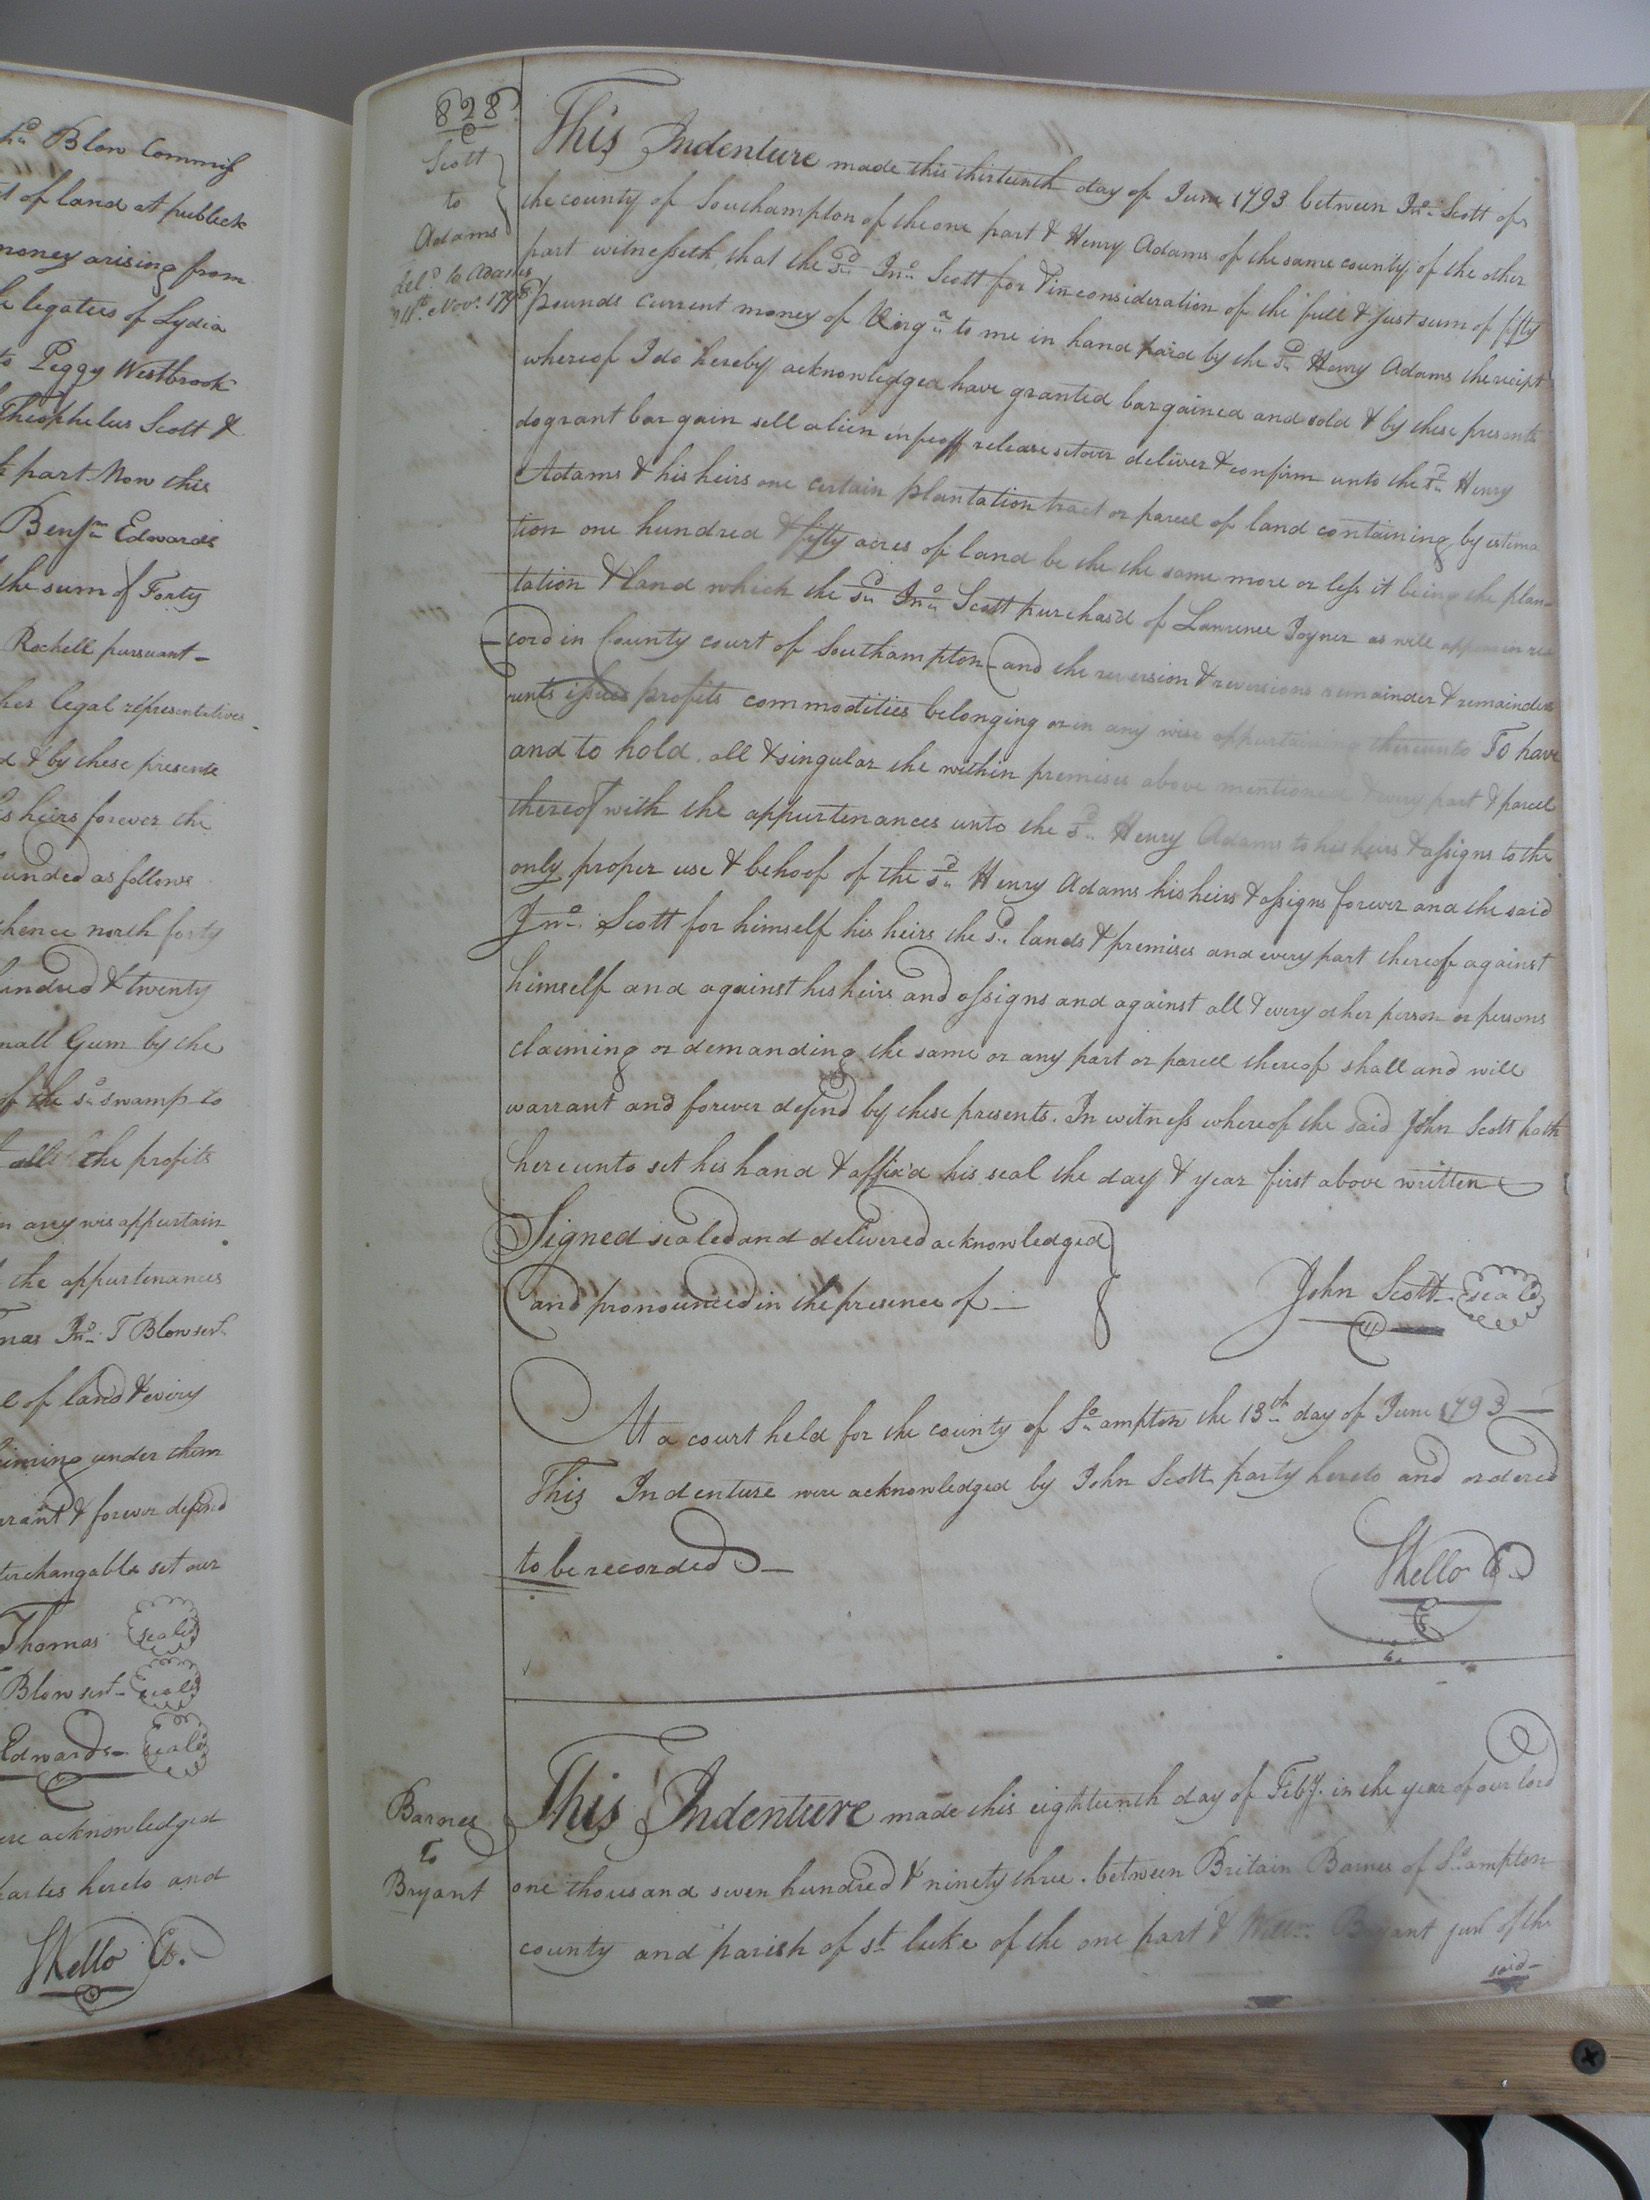 hn Blow Commis
t of land at publick
money arising from
e legatees of Lydia
to Peggy Westbrook
Theophelus Scott &
part Now this
Benjm Edwards
the sum of Forty
Rochell pursuant
her legal representatives
d & by these presents
s heirs forever the
unded as follows
thence north forty
undred & twenty
mall Gum by the
of the sd swamp to
all the profits
n any wis appurtain
the appurtenances
mas Jno T Blow senr
e of land & every
iming under them
rant & forever defend
terchangable set our
Thomas seald
Blow senr seald
Edwards seald
ere acknowledged
parties hereto and
SKello Cl.
828
Scott
to
Adams
deld to Adams
Novr 1798
This Indenture made this thirteenth day of June 1793 between Jno Scott of
the county of Southampton of the one part & Henry Adams of the same county of the other
part witnesseth, that the sd Jno Scott for & in consideration of the full & just sum of fifty
pounds current money of Virga to me in hand paid by the sd Henry Adams the reciept
whereof I do hereby acknowledged have granted bargained and sold & by these presents
do grant bargain sell alien infeoff release setover deliver & confirm unto the sd Henry
Adams & his heirs one certain plantation tract or parcel of land containing by estima
tion one hundred & fifty acres of land be the the same more or less it being the plan-
tation & land which the sd Jno Scott purchas'd of Lawrence Joyner as will appear in re
cord in County court of Southampton and the reversion & reversions remainder & remainders
rents issues profits commodities belonging or in any wise appurtaining thereunto To have
and to hold all & singular the within premises above mentioned & every part & parcel
thereof with the appurtenances unto the sd Henry Adams to his heirs & assigns to the
only proper use & behoof of the sd Henry Adams his heirs & assigns forever and the said
Jno Scott for himself his heirs the sd lands & premises and every part thereof against
himself and against his heirs and assigns and against all & every other person or persons
claiming or demanding the same or any part or parcell thereof shall and will
warrant and forever defend by these presents. In witness whereof the said John Scott hath
hereunto set his hand & affix'd his seal the day & year first above written
Signed sealed and delivered acknowledged
and pronounced in the presence of
John Scott seald
At a court held for the county of So ampton the 13th day of June 1793
This Indenture were acknowledged by John Scott party hereto and ordered
to be recorded
SKello Cl.
Barnes
to
Bryant
This Indenture made this eighteenth day of Feby. in the year of our lord
one thousand seven hundred & ninety three. between Britain Barnes of So ampton
county and parish of st luke of the one part & Willm Bryant junr of the
said